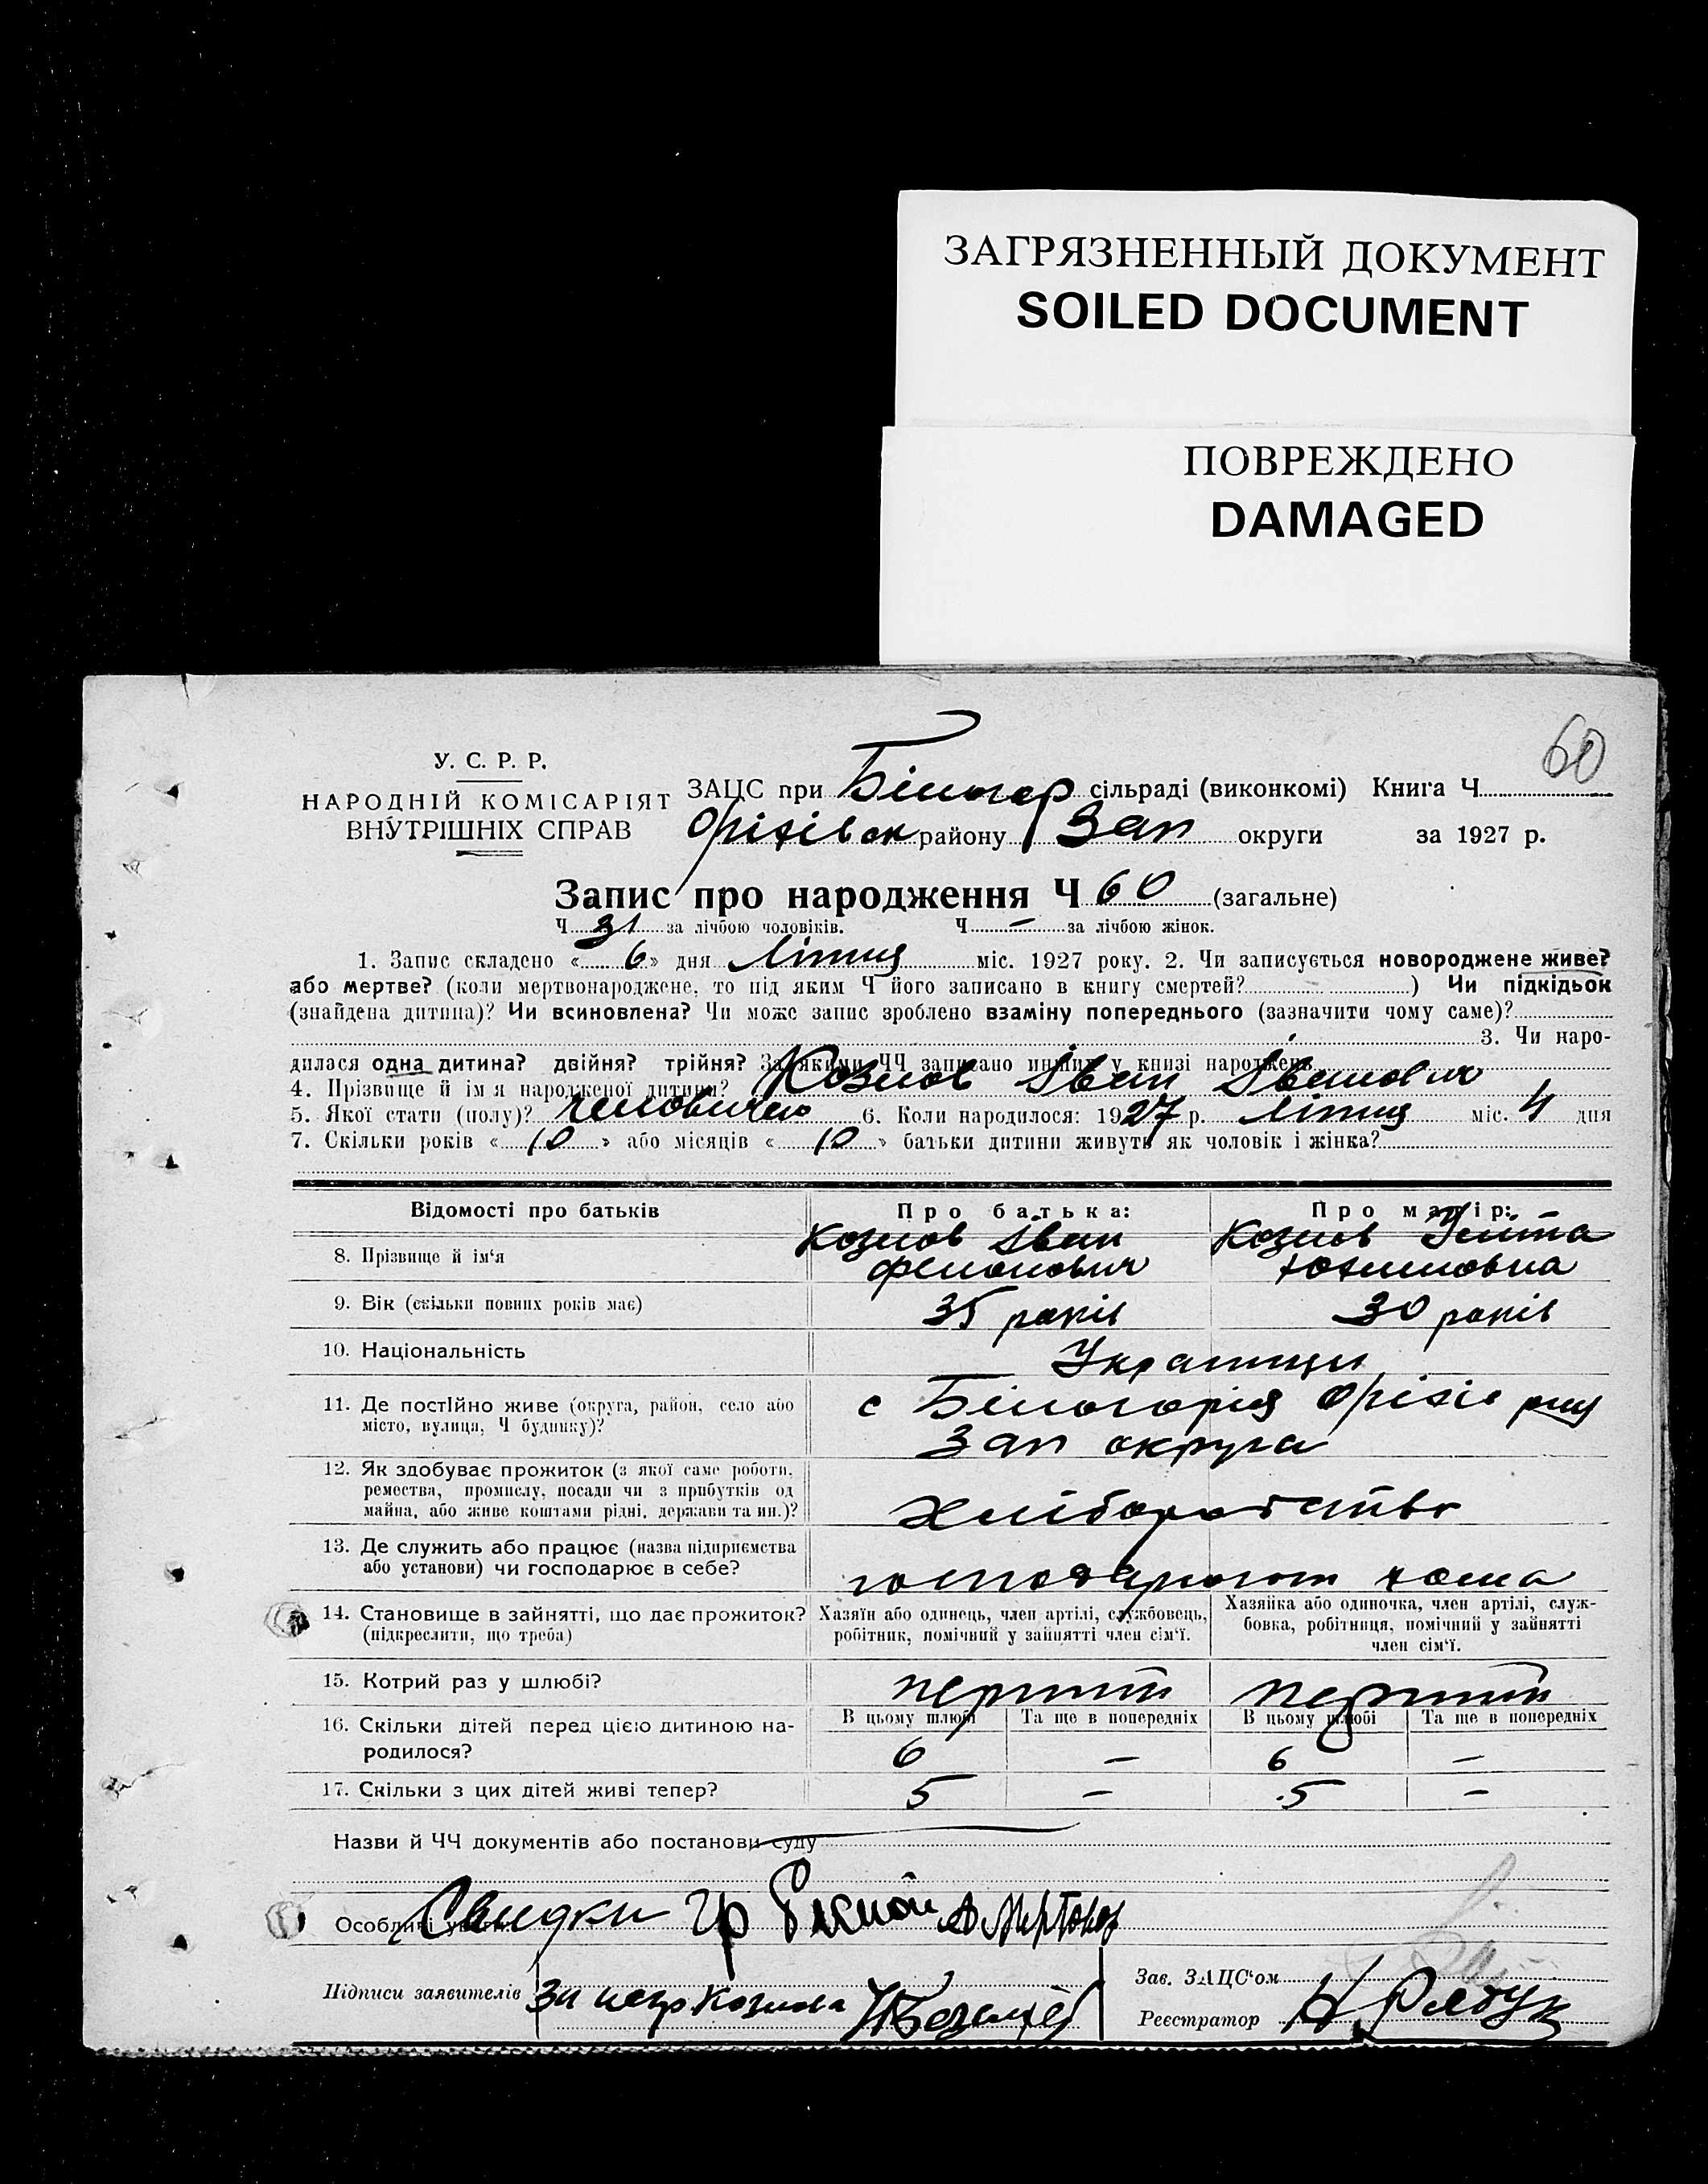 ЗАГРЯЗНЕННЫЙ ДОКУМЕНТ
SOILED DOCUMENT
ПОВРЕЖДЕНО
DAMAGED
60
У. С. Р. Р.
НАРОДНІЙ КОМІСАРІЯТ
ВНУТРІШНІХ СПРАВ
ЗАЦС при Білогор сільраді (виконкомі) Книга Ч
Оріхівськ району Зап округи за 1927 р.
Запис про народження Ч 60 (загальне)
Ч 31 за лічбою чоловіків. Ч — за лічбою жінок.
1. Запис складено « 6 » дня Липця міс. 1927 року. 2. Чи записується новороджене живе?
або мертве? (коли мертвонароджене, то під яким Ч його записано в книгу смертей? ) Чи підкідьок
(знайдена дитина)? Чи всиновлена? Чи може запис зроблено взаміну попереднього (зазначити чому саме)?
3. Чи наро-
дилася одна дитина? двійня? трійня? За якими ЧЧ записано инших у книзі народжень
4. Прізвище й ім я народженої дитини? Козлов Іван Іванович
5. Якої стати (полу)? 6. Коли народилося: 1927 р. Липця міс. 4 дня
7. Скільки років « 10 » або місяців « 10 » батьки дитини живуть як чоловік і жінка?
Відомості про батьків Про батька: Про матір:
8. Прізвище й ім‘я Козлов Іван Козлов
9. Вік (скільки повних років має) 35 років 30 років
10. Національність Українці
11. Де постійно живе (округа, район, село або
місто, вулиця, Ч будинку)? с Білогорія Оріхів
Зап округа
12. Як здобуває прожиток (з якої саме роботи,
ремества, промислу, посади чи з прибутків од
майна, або живе коштами рідні, держави та ин.)? Хліборобство
13. Де служить або працює (назва підприємства
або установи) чи господарює в себе?
14. Становище в зайнятті, що дає прожиток?
(підкреслити, що треба)
Хазяїн або одинець, член артілі, службовець,
робітник, помічний у зайнятті член сім‘ї.
Хазяйка або одиночка, член артілі, служ-
бовка, робітниця, помічний у зайнятті
член сім‘ї.
15. Котрий раз у шлюбі? перший перший
16. Скільки дітей перед цією дитиною на-
родилося?
В цьому шлюбі Та ще в попередніх В цьому шлюбі Та ще в попередніх
6 — 6 —
17. Скільки з цих дітей живі тепер? 5 — 5 —
Назви й ЧЧ документів або постанови суду
Особливі уваги: Свидки гр
Підписи заявителів За негр Козлова
Зав. ЗАЦС‘ом
Реєстратор